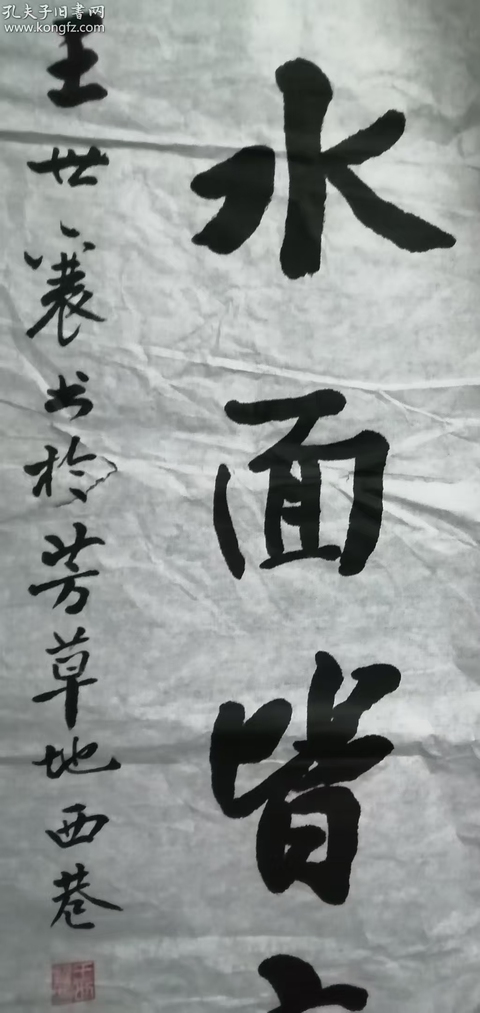 孔夫子旧書网
www.kongfz.com
水面皆
王世襄书於芳草地西巷